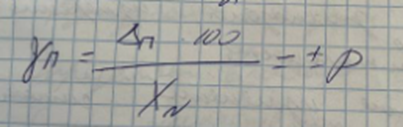 γп = Δп 100 / X_N = ± p